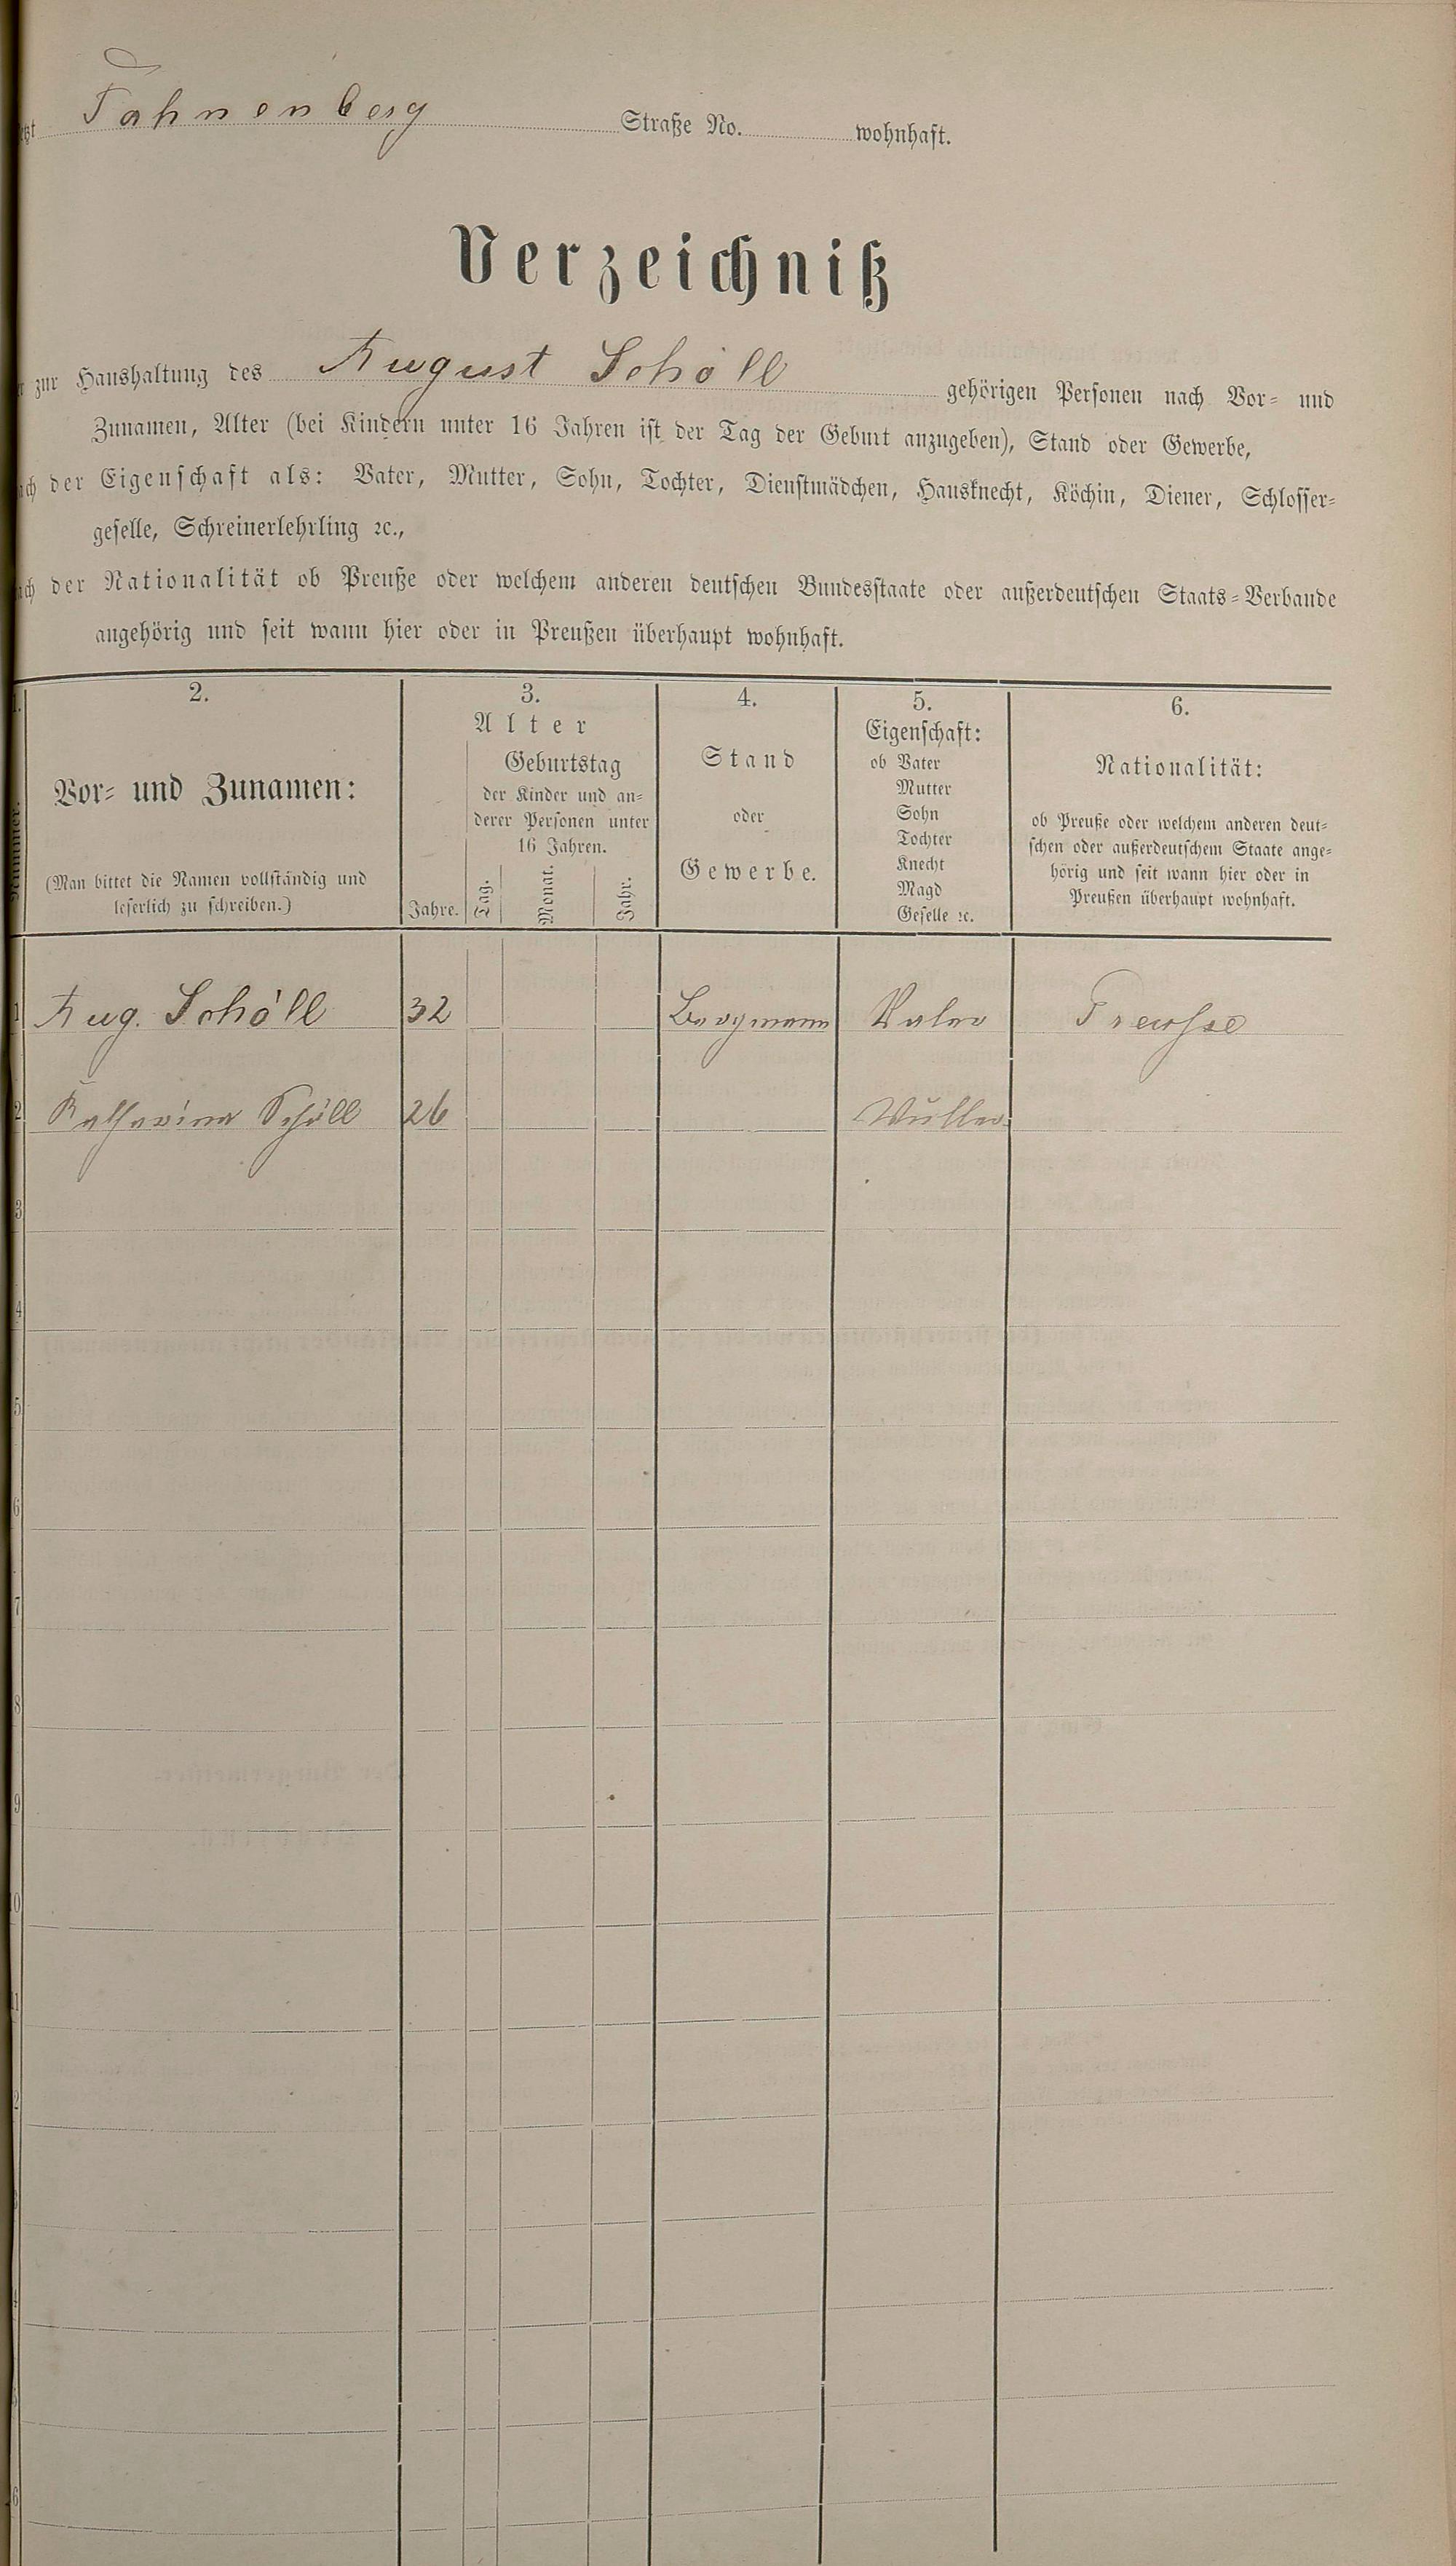 Tahnenberg Straße No. wohnhaft.
Verzeichniß
zur Haushaltung des August Schöll gehörigen Personen nach Vor- und
Zunamen, Alter (bei Kindern unter 16 Jahren ist der Tag der Geburt anzugeben), Stand oder Gewerbe,
der Eigenschaft als: Vater, Mutter, Sohn, Tochter, Dienstmädchen, Hausknecht, Köchin, Diener, Schlosser-
geselle, Schreinerlehrling ꝛc.,
der Nationalität ob Preuße oder welchem anderen deutschen Bundesstaate oder außerdeutschen Staats-Verbande
angehörig und seit wann hier oder in Preußen überhaupt wohnhaft.
2. 3. 4. 5. 6.
Vor- und Zunamen:
(Man bittet die Namen vollständig und
leserlich zu schreiben.)
Alter
Jahre.
Geburtstag
der Kinder und an-
derer Personen unter
16 Jahren.
Tag. Monat. Jahr.
Stand
oder
Gewerbe.
Eigenschaft:
ob Vater
Mutter
Sohn
Tochter
Knecht
Magd
Geselle ꝛc.
Nationalität:
ob Preuße oder welchem anderen deut-
schen oder außerdeutschem Staate ange-
hörig und seit wann hier oder in
Preußen überhaupt wohnhaft.
1 Aug. Schöll 32 Bergmann Vater Preusse
2 Katharina Schöll 26 Mutter
3
4
5
6
7
8
9